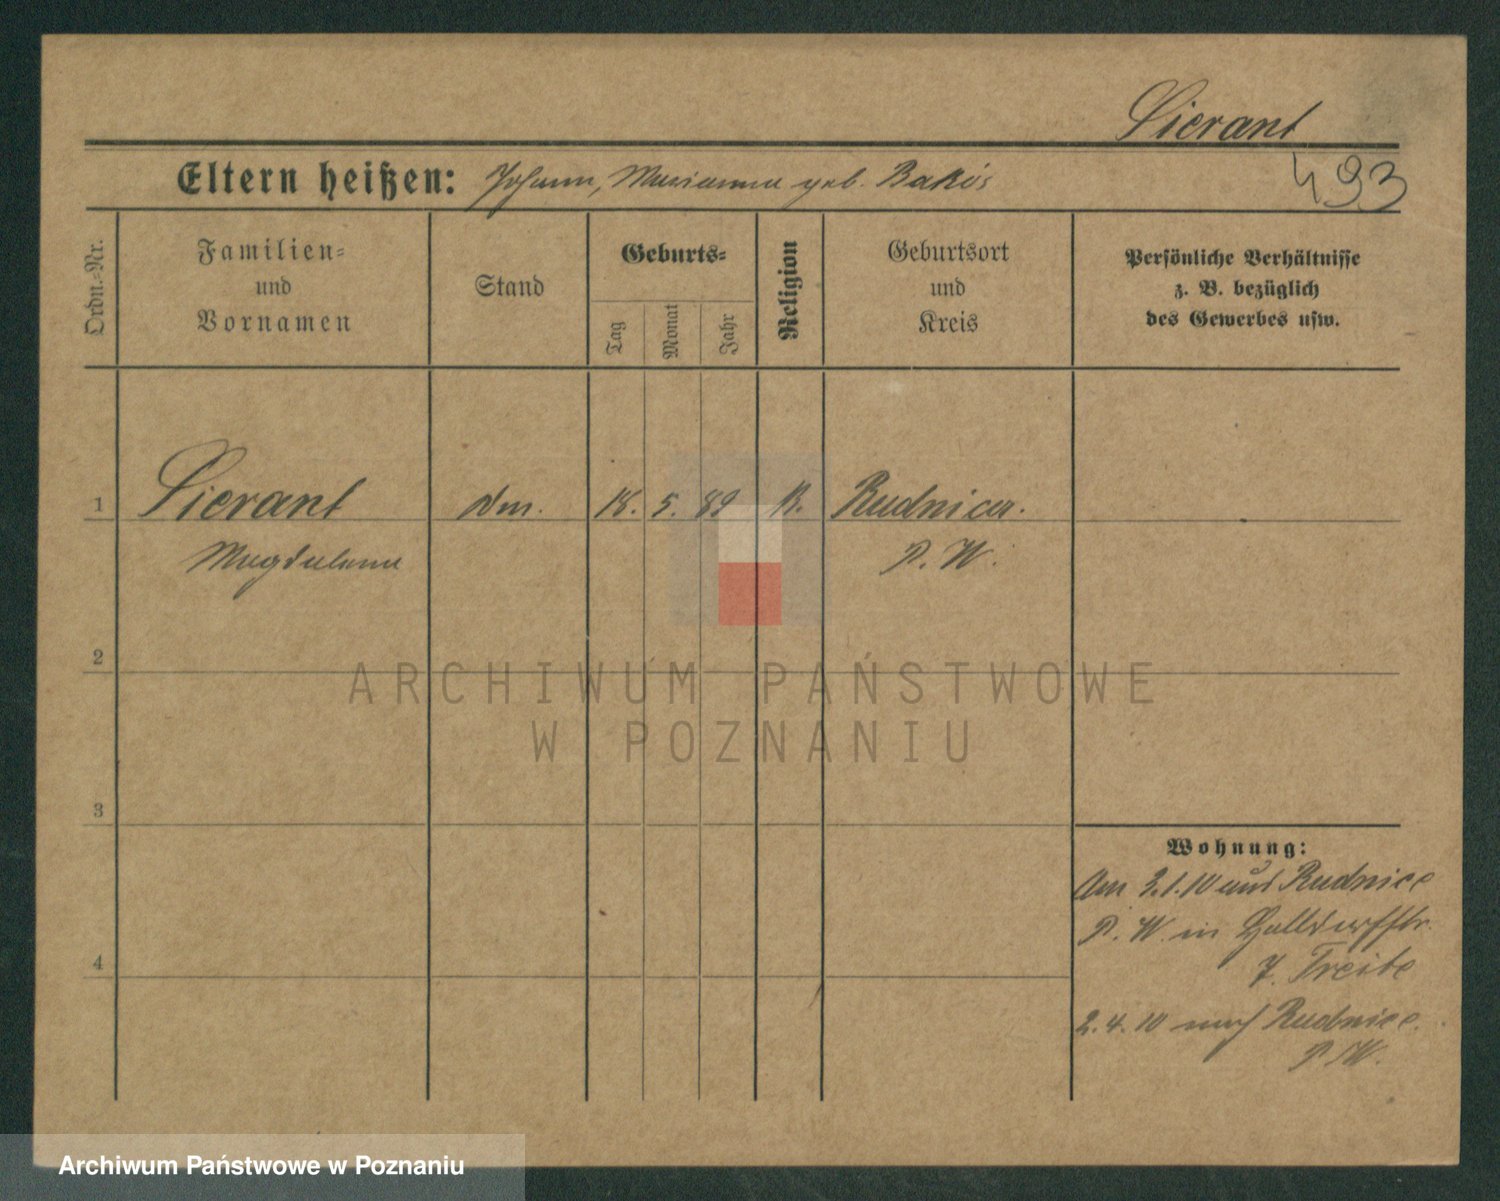 Sierant
Eltern heißen: Johann, Marianna geb. Bakós
493
Ordn.-Nr.
Familien- und Vornamen
Stand
Geburts-
Tag
Monat
Jahr
Religion
Geburtsort und Kreis
Persönliche Verhältnisse
z. B. bezüglich
des Gewerbes usw.
1 Sierant 18. 5. 89 K. Rudnicu.
Magdalena P. W.
2
3
4
Wohnung:
Am 3.1.10 aus Rudnice
P. W. in
7. Treite
2.4.10 nach Rudnice.
P. W.
ARCHIWUM PAŃSTWOWE
W POZNANIU
Archiwum Państwowe w Poznaniu